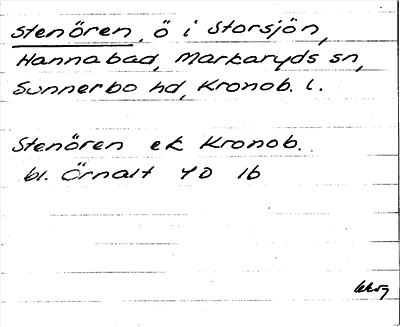 Stenören, ö i Storsjön,
Hannabad, Markaryds sn,
Sunnerbo hd, Kronob. l.
Stenören ek Kronob.
bl. Örnalt 4D 1b